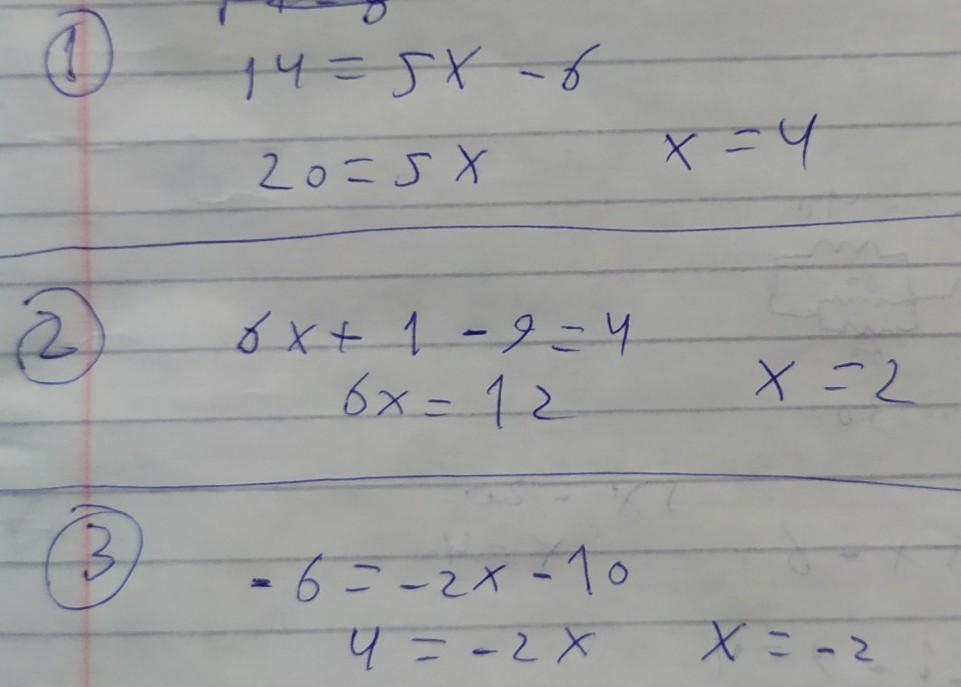 ① 14 = 5x - 6
20 = 5x x = 4
② 6x + 1 - 9 = 4
6x = 12 x = 2
③ - 6 = -2x - 10
4 = -2x x = -2